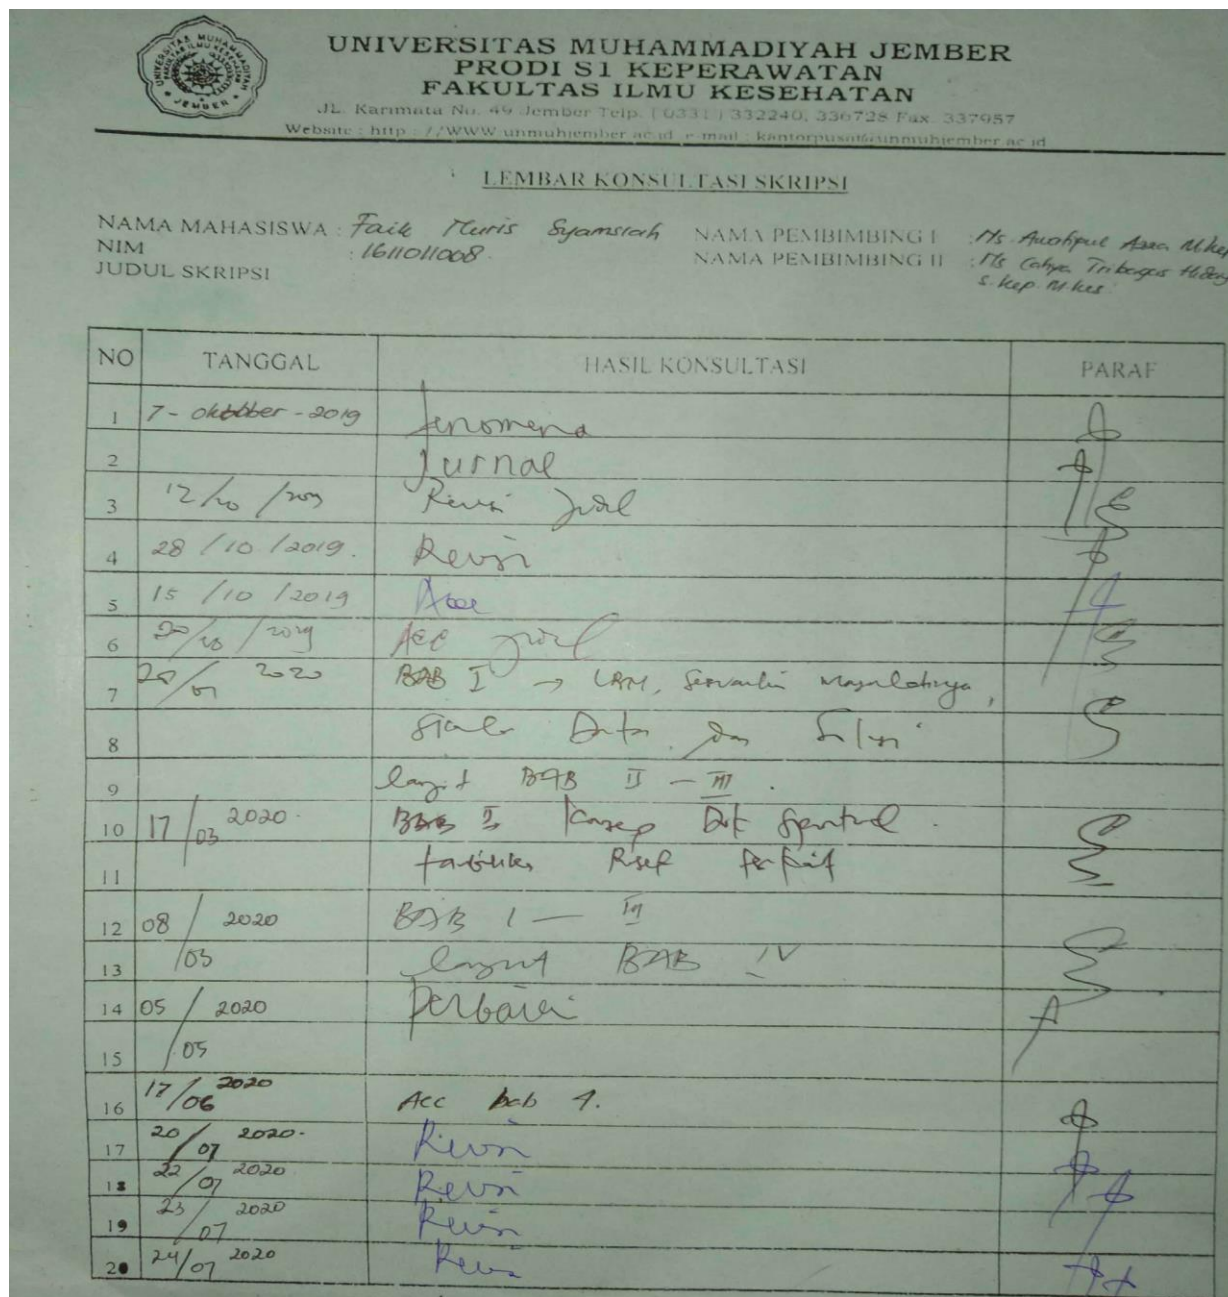 UNIVERSITAS MUHAMMADIYAH JEMBER
PRODI S1 KEPERAWATAN
FAKULTAS ILMU KESEHATAN
JL. Karimata No. 49 Jember Telp. (0331) 332240, 336728 Fax. 337957
Website : http : //WWW.unmuhjember.ac.id e-mail : kantorpusat@unmuhjember.ac.id
LEMBAR KONSULTASI SKRIPSI
NAMA MAHASISWA : Faik Nuris Syamsiah NAMA PEMBIMBING I :
NIM : 1611011008. NAMA PEMBIMBING II : Cahya Tribagus
JUDUL SKRIPSI S.Kep. M.kes
NO TANGGAL HASIL KONSULTASI PARAF
1 7 - oktober - 2019 fenomena
2 Jurnal
3 12/10/2019 Revisi Judul
4 28 / 10 / 2019. Revisi
5 15 / 10 / 2019 Acc
6 20/10/2019 ACC Judul
7 2020 BAB I →
8 Data dan Solusi
9 lanjut BAB II - III.
10 17/03 2020. BAB 2 Konsep
11 Riset
12 08/ 2020 BAB I — III
13 /03 lanjut BAB IV
14 05/ 2020 Perbaiki
15 /05
16 17/06 2020 Acc bab 4.
17 20/07 2020. Revisi
18 22/07 2020 Revisi
19 23/07 2020 Revisi
20 24/07 2020 Revisi